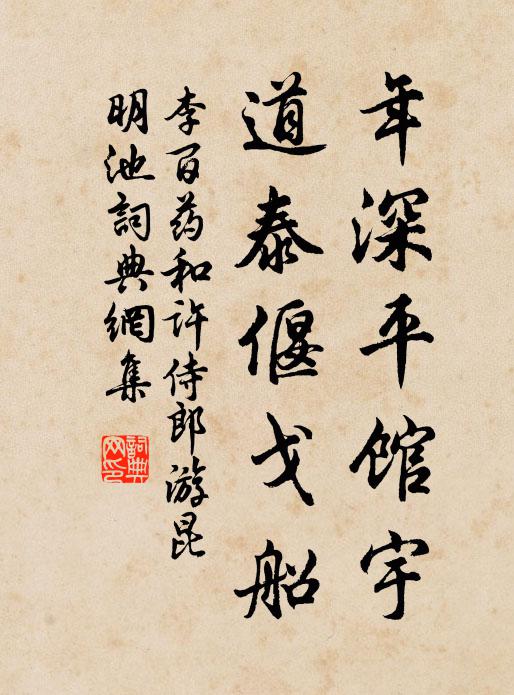 年深平馆宇
道泰偃戈船
李百药和许侍郎游昆
明池詞典網集
詞典
网印